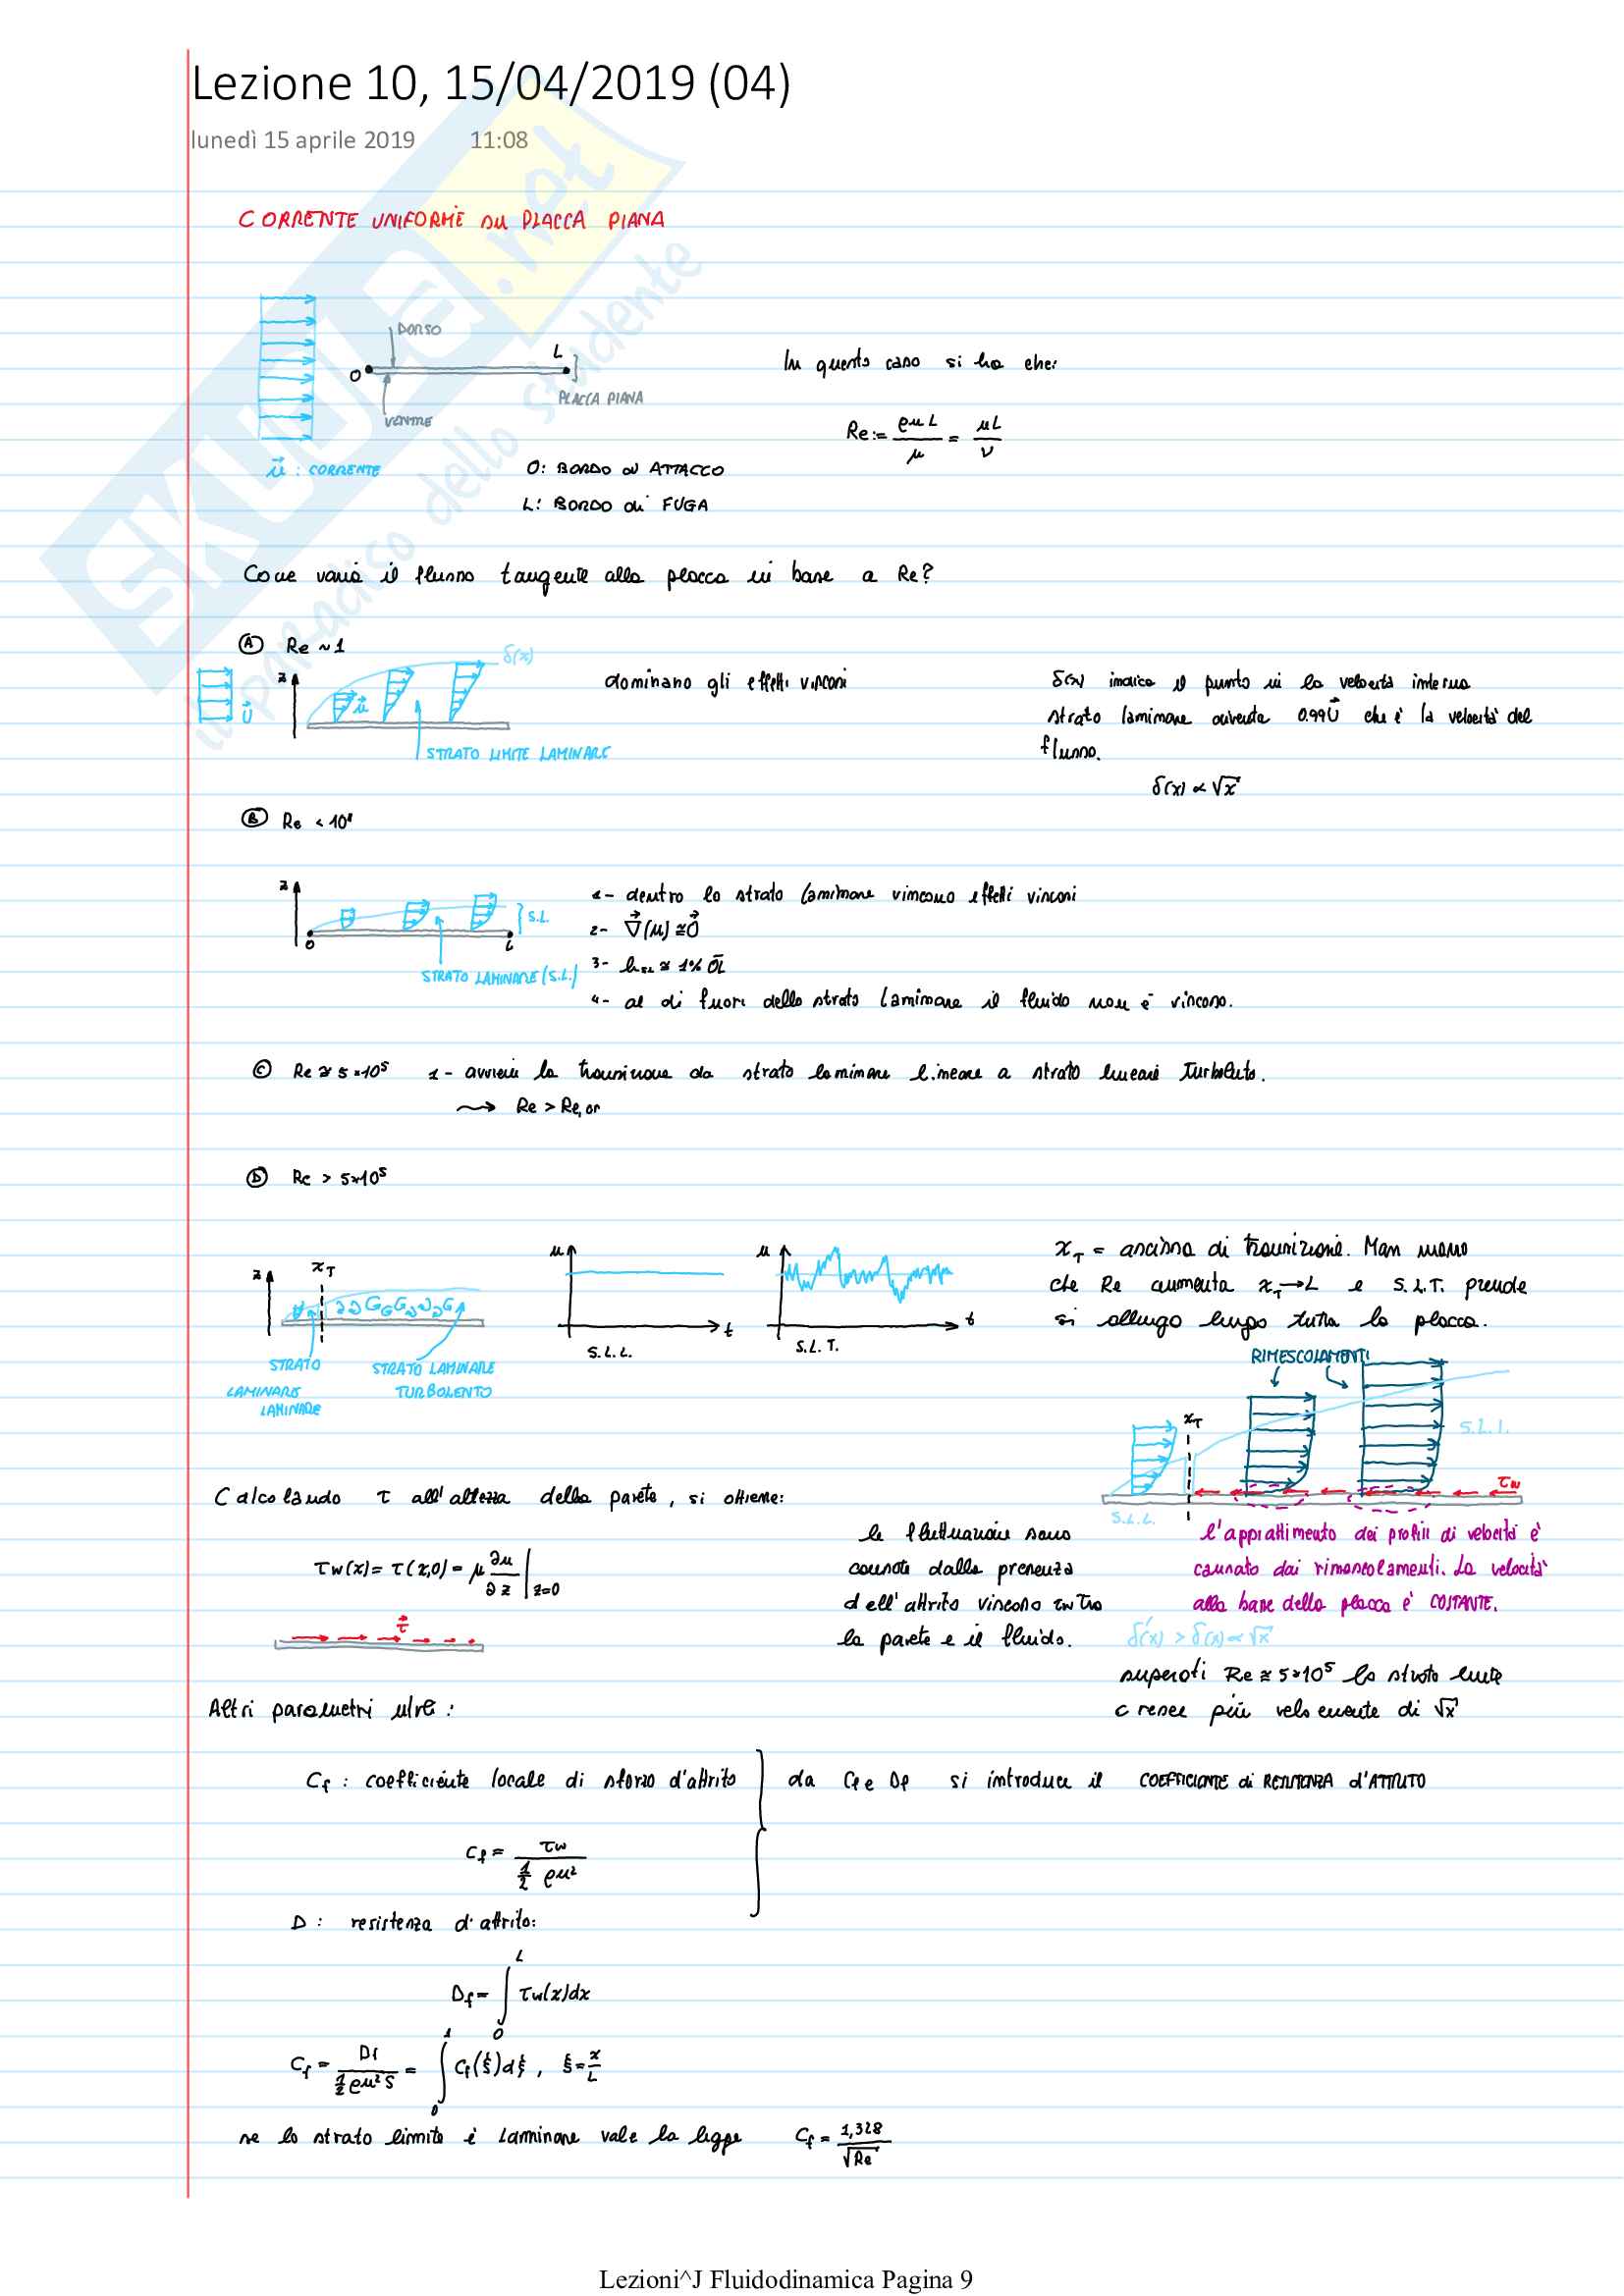 Lezione 10, 15/04/2019 (04)
lunedì 15 aprile 2019 11:08
SKUOLA.net
il paradiso dello studente
CORRENTE UNIFORME su PLACCA PIANA
DORSO
O L
PLACCA PIANA
VENTRE
u⃗ : CORRENTE
O: BORDO di ATTACCO
L: BORDO di FUGA
In questo caso si ha che:
Re := ρuL/μ = uL/ν
Come varia il flusso tangente alla placca in base a Re?
Ⓐ Re ~ 1
z u⃗ δ(x)
U⃗
STRATO LIMITE LAMINARE
dominano gli effetti viscosi
δ(x) indica il punto in la velocità interna
strato laminare diventa 0.99U⃗ che è la velocità del
flusso.
δ(x) ∝ √x
Ⓑ Re <
z
O L
S.L.
STRATO LAMINARE (S.L.)
1- dentro lo strato laminare vincono effetti viscosi
2- ∇⃗(u) ≅ 0⃗
3- h_SL ≅ 1% O̅L̅
4- al di fuori dello strato laminare il fluido non è viscoso.
Ⓒ Re ≅ 5*10⁵ 1- avviene la transizione da strato laminare lineare a strato lineare Turbolento.
⟿ Re > Re,cr
Ⓓ Re > 5*10⁵
z x_T
STRATO
LAMINARE
LAMINARE
STRATO LAMINARE
TURBOLENTO
u t
S.L.L.
u t
S.L.T.
x_T = ascissa di transizione. Man mano
che Re aumenta x_T → L e S.L.T. prende
si allunga lungo tutta la placca.
RIMESCOLAMENTI
x_T
S.L.L.
τw
S.L.L.
Calcolando τ all'altezza della parete, si ottiene:
τw(x) = τ(x,0) = μ ∂u/∂z |z=0
τ⃗
le fluttuazioni sono
causate dalla presenza
dell'attrito viscoso tra
la parete e il fluido.
l'appiattimento dei profili di velocità è
causato dai rimescolamenti. La velocità
alla base della placca è COSTANTE.
δ'(x) > δ(x) ∝ √x
superati Re ≅ 5*10⁵ lo strato limite
cresce più velocemente di √x
Altri parametri utili :
Cf : coefficiente locale di sforzo d'attrito
da Cf e Df si introduce il COEFFICIENTE di RESISTENZA d'ATTRITO
Cf = τw / ½ ρu²
D : resistenza d'attrito:
Df = ∫₀ᴸ τw(x)dx
Cf = Df / ½ρu²S = ∫₀¹ Cf(ξ)dξ , ξ = x/L
se lo strato limite è laminare vale la legge Cf = 1,328/√Re
Lezioni^J Fluidodinamica Pagina 9